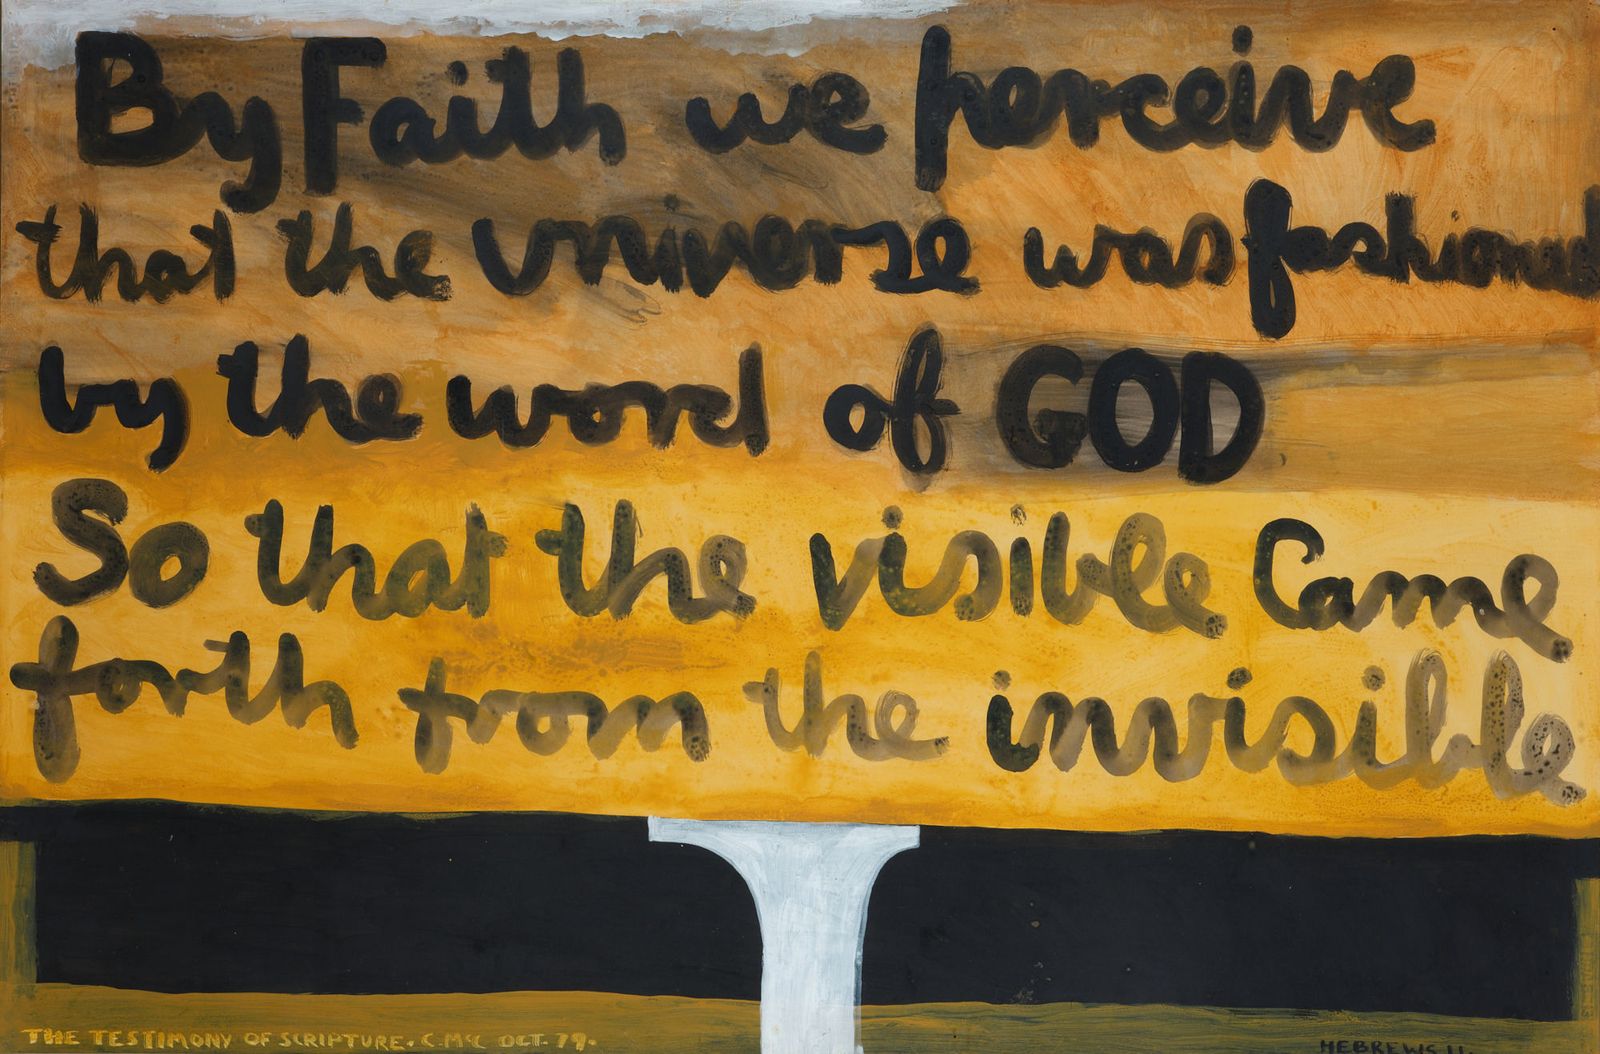 By Faith we perceive
that the universe was fashioned
by the word of GOD
So that the visible Came
forth from the invisible
THE TESTIMONY OF SCRIPTURE. C.McC OCT. 79.
HEBREWS 11